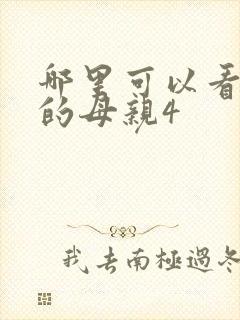 哪里可以看
的母親4
我去南極過冬